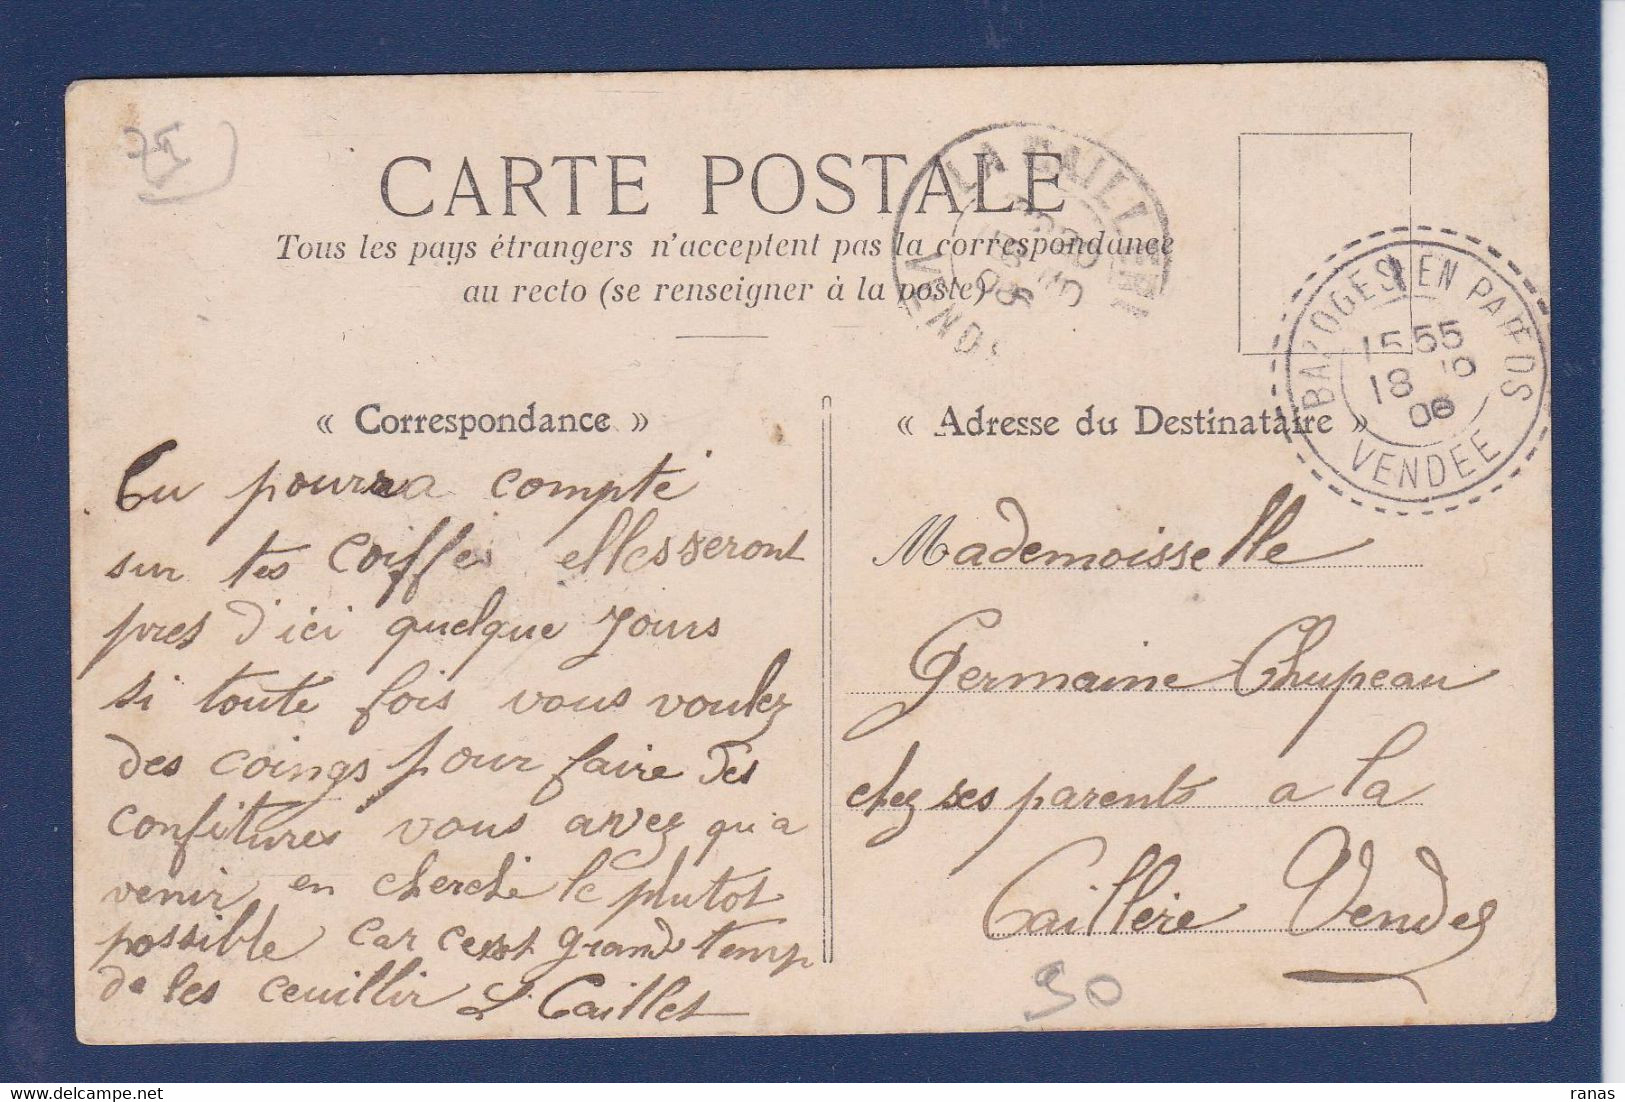 75
CARTE POSTALE
Tous les pays étrangers n'acceptent pas la correspondance
au recto (se renseigner à la poste)
LA CAILLERE
VENDÉE
BAZOGES EN PAREDS
15 55
18
VENDEE
« Correspondance »
Tu pourra compté
sur tes coiffes elles seront
pres d'ici quelque Jours
si toute fois vous voulez
des coings pour faire des
confitures vous avez qu'a
venir en cherché le plutot
possible car cest grand temp
de les ceuillir L. Caillet
« Adresse du Destinataire »
Mademoisselle
Germaine Chupeau
chez ses parents a la
Caillère Vendeé
90
ranas